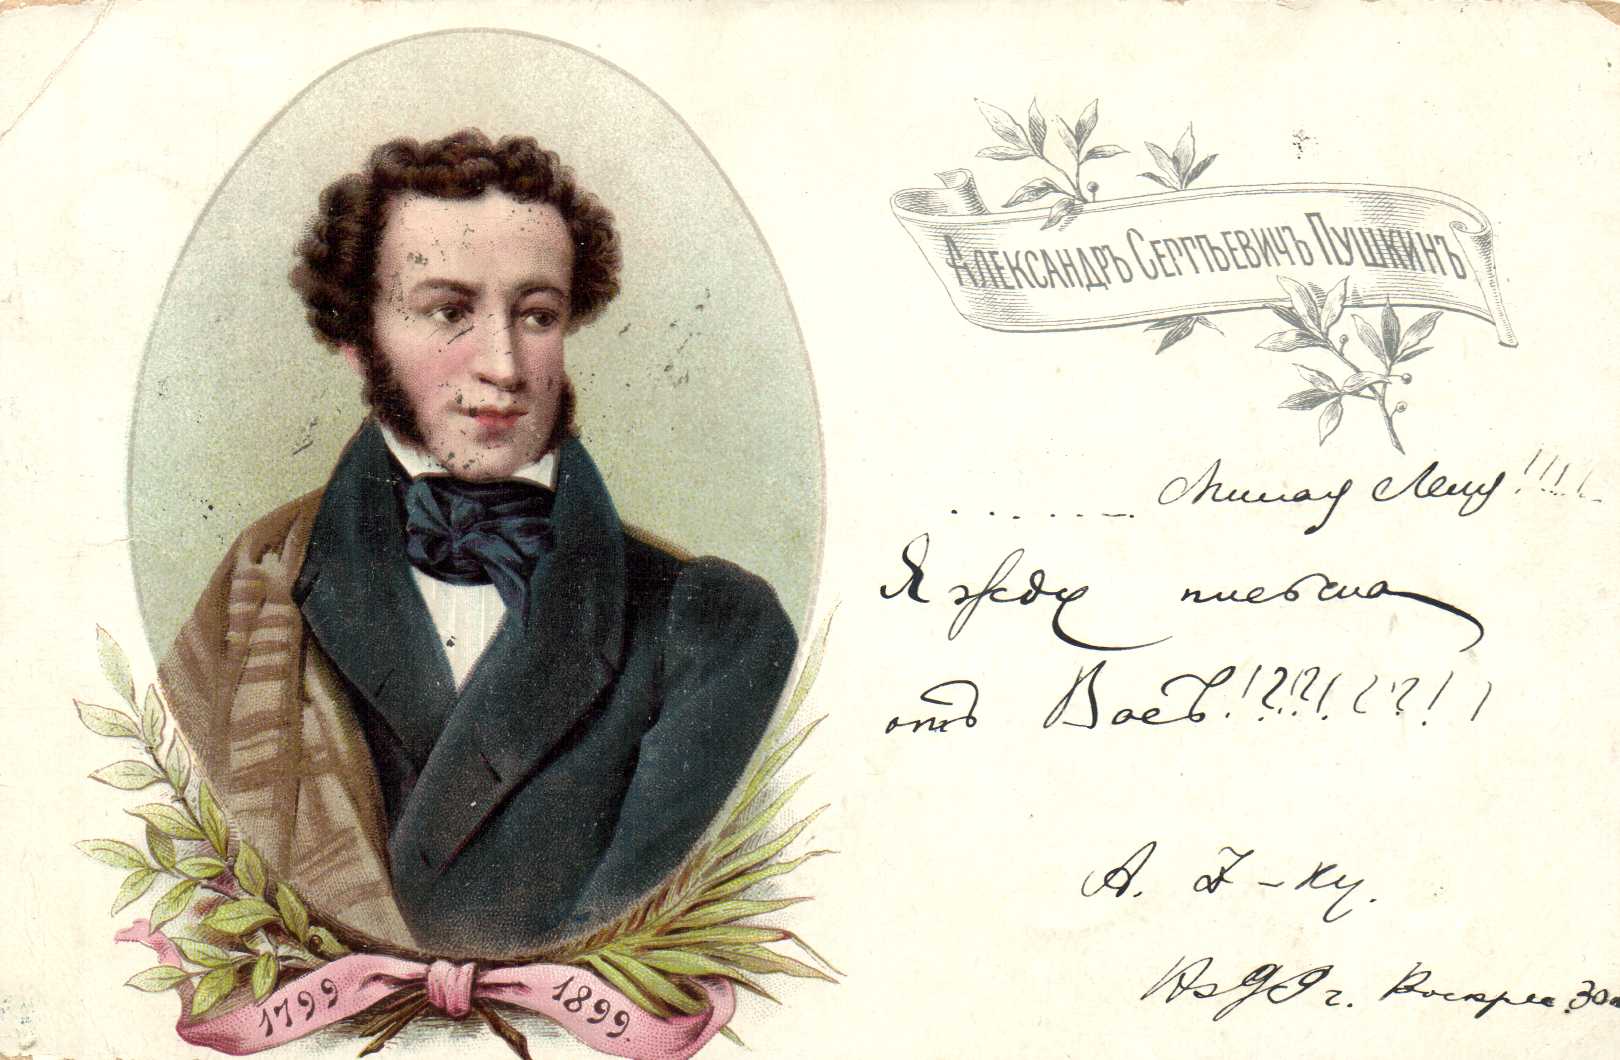 Александръ Сергѣевичъ Пушкинъ
........ Милая Леля!!!!
Я жду письма
отъ Васъ!?!?!??!!
А. -ку.
1899 г. Воскрес. 30
1799 1899